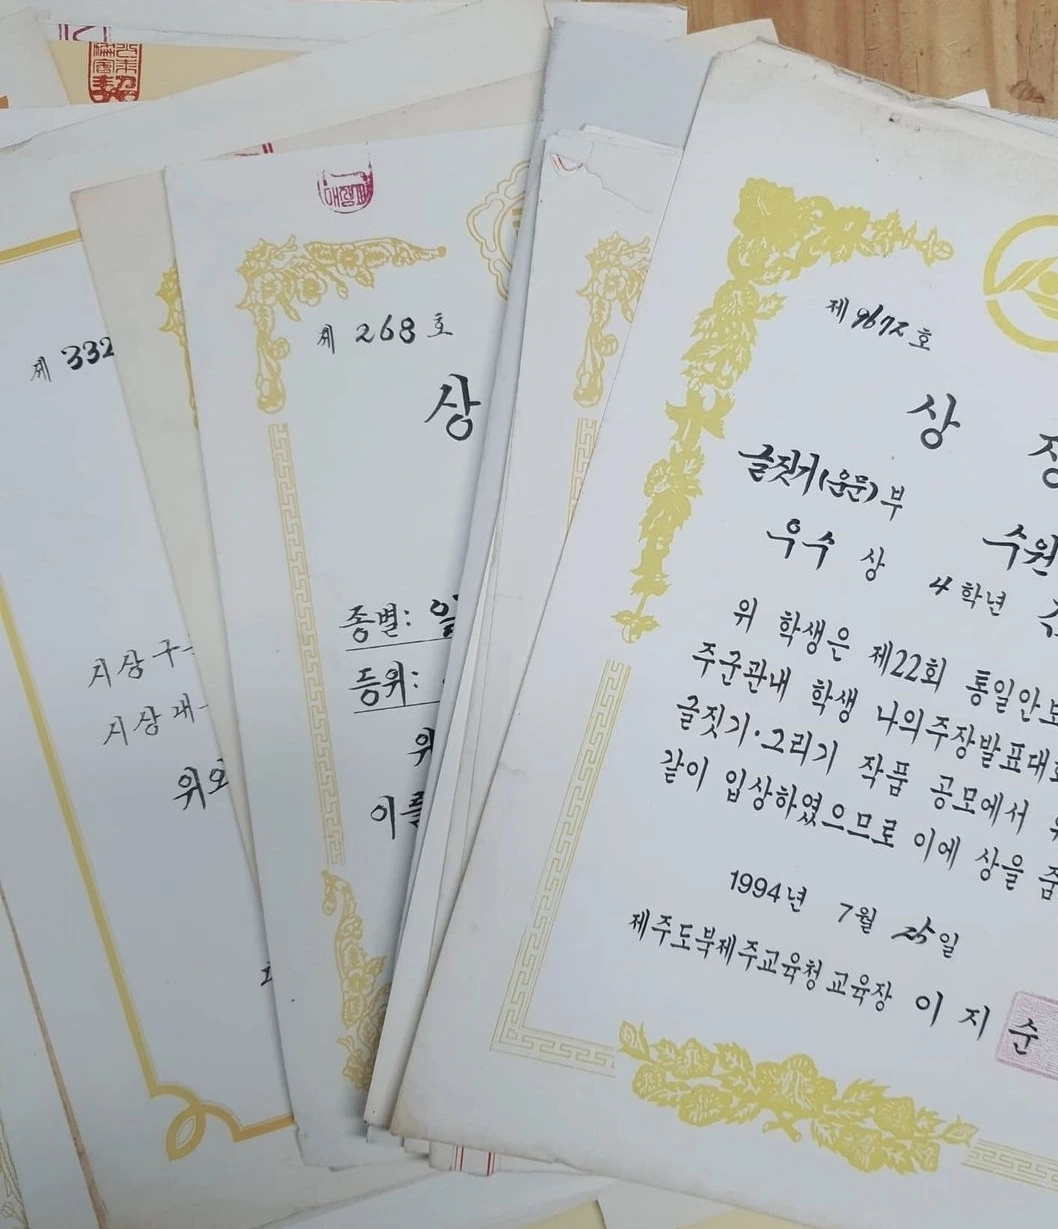 제 332
제 268 호
상
종별:
등위:
시상
시상
제 9672 호
상
글짓기(운문)부
수원
우수 상 4학년
위 학생은 제22회 통일안보
주군관내 학생 나의주장발표대회
글짓기·그리기 작품 공모에서
같이 입상하였으므로 이에 상을 줌
1994년 7월 25일
제주도북제주교육청교육장 이 지 순